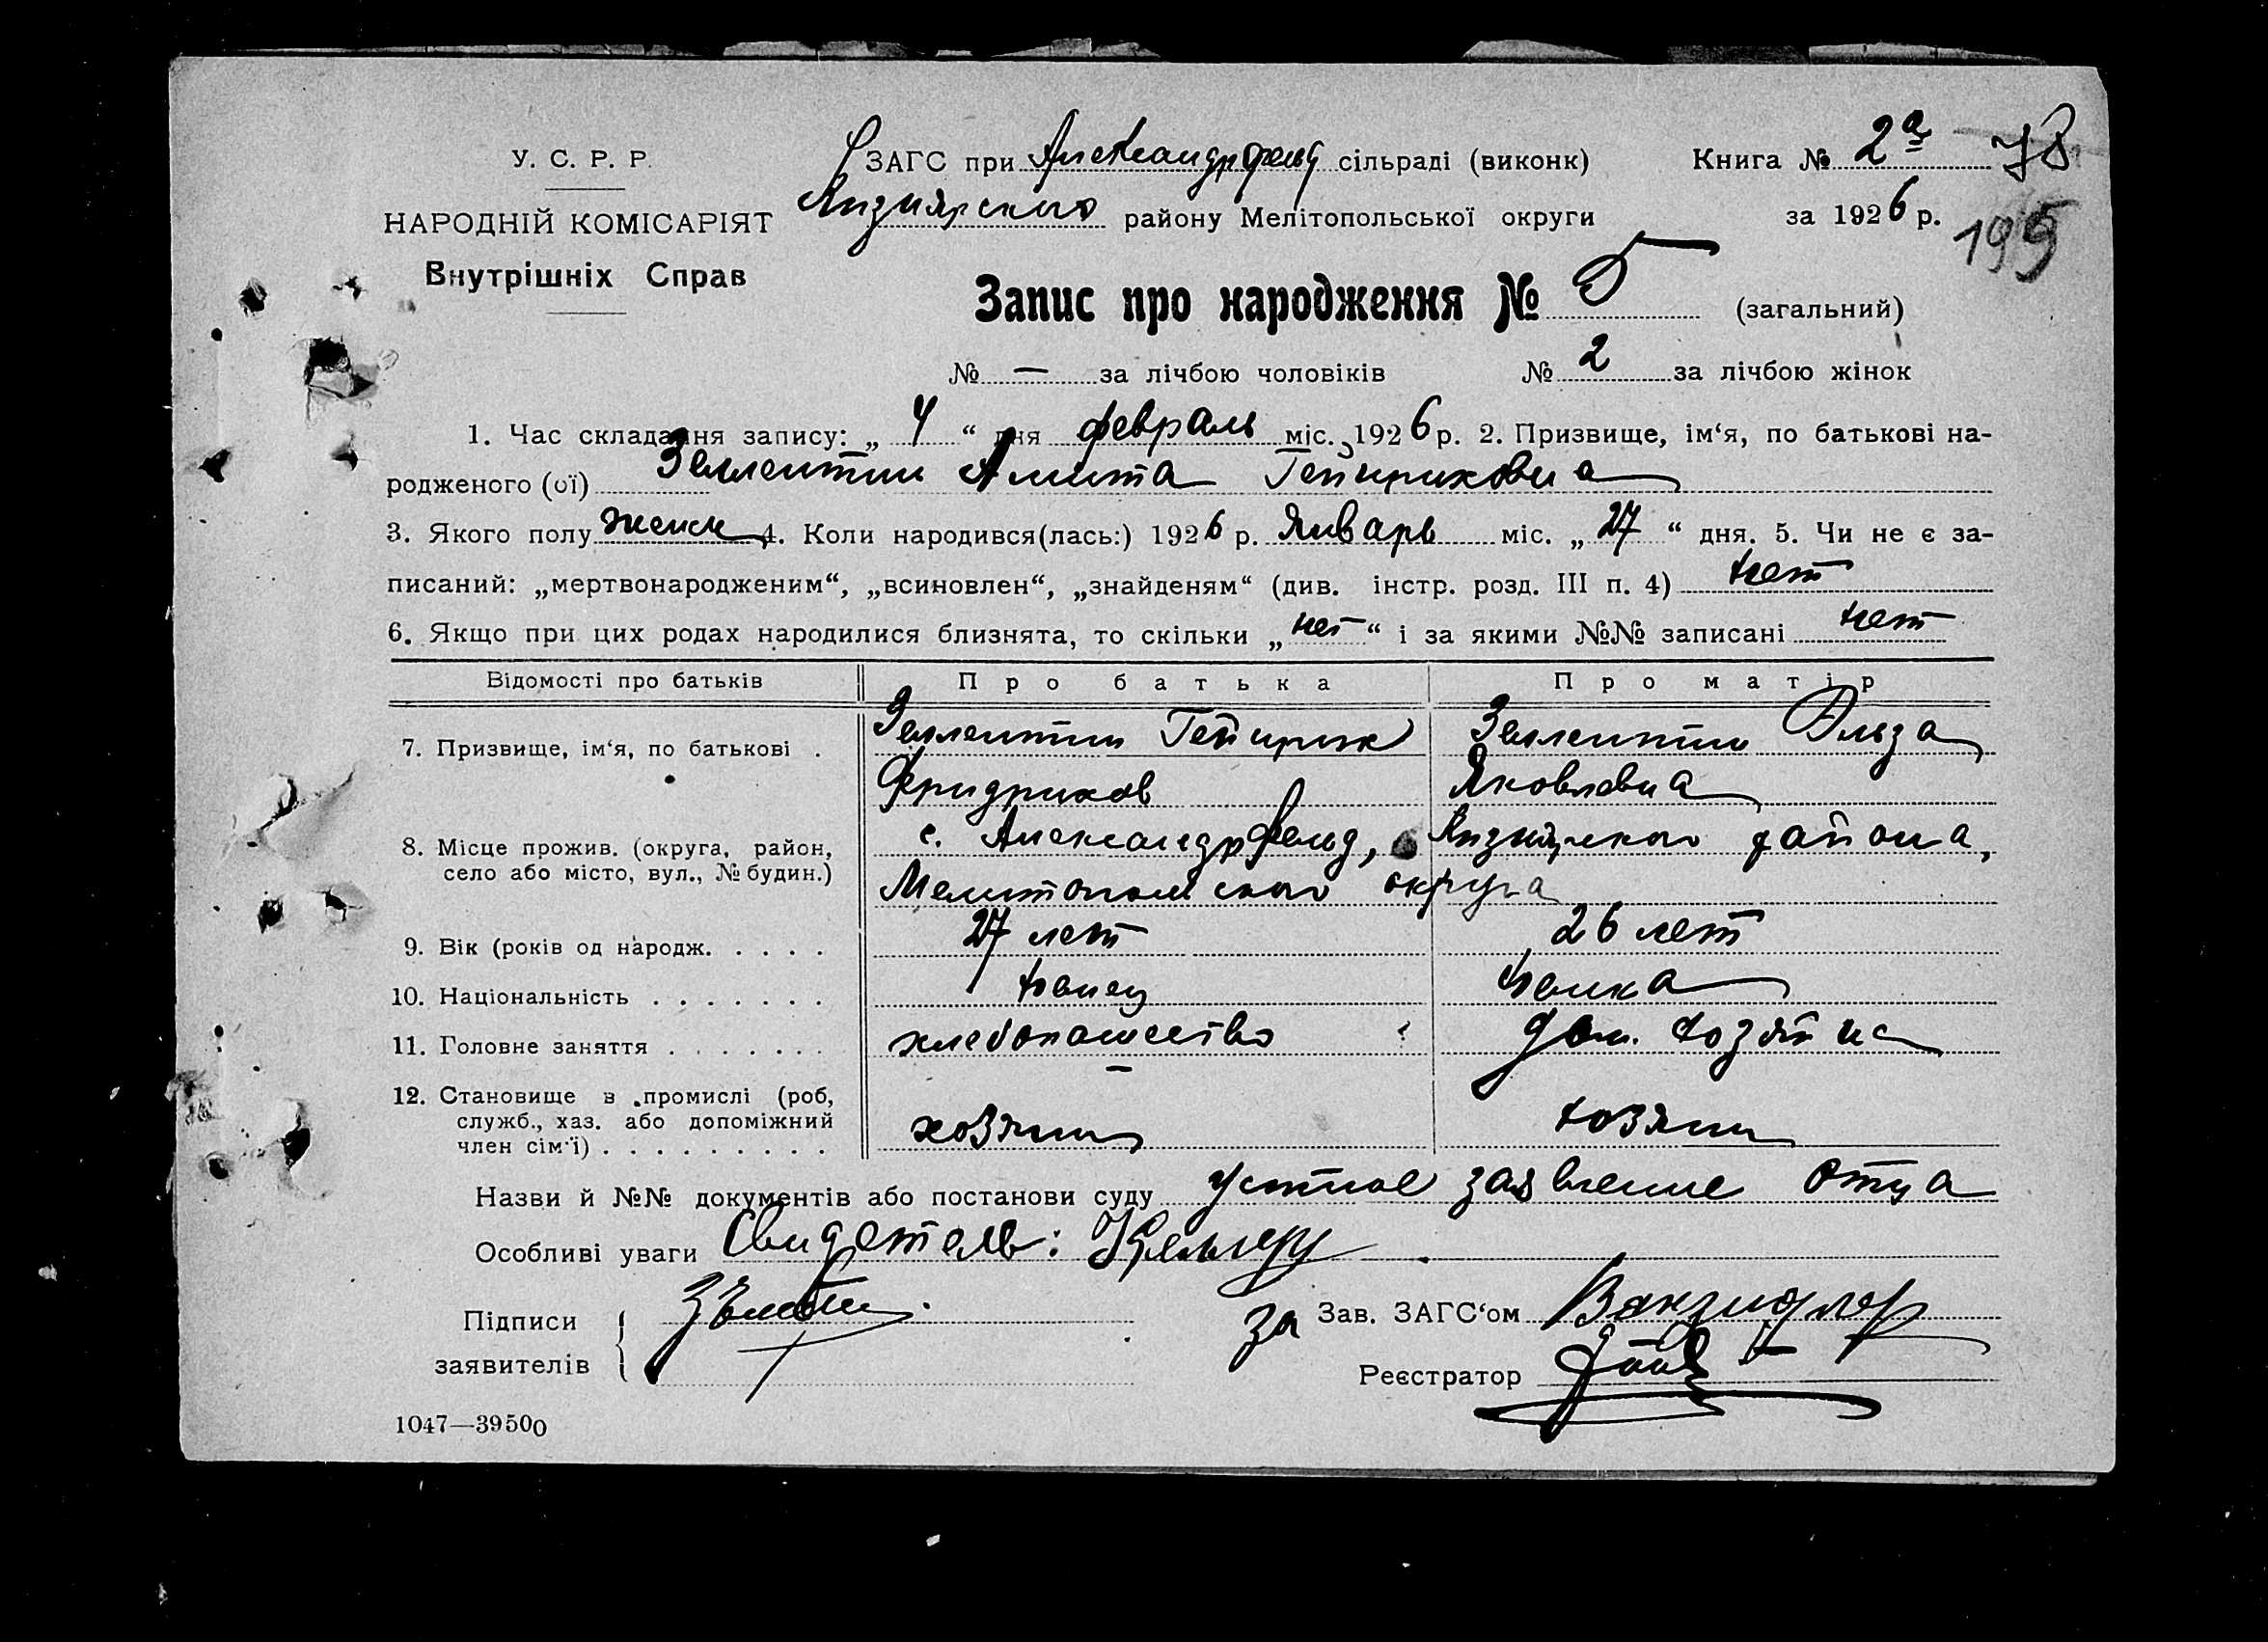 У. С. Р. Р.
НАРОДНІЙ КОМІСАРІЯТ
Внутрішніх Справ
ЗАГС при Александрфельд сільраді (виконк)
району Мелітопольської округи
Книга № 2а 78
за 1926 р. 195
Запис про народження № 5 (загальний)
№ — за лічбою чоловіків № 2 за лічбою жінок
1. Час складання запису: „ 4 “ дня февраль міс. 1926 р. 2. Призвище, ім‘я, по батькові на-
родженого (ої) Зеллентин Анита Гейнриховна
3. Якого полу женск 4. Коли народився(лась:) 1926 р. Январь міс. „ 27 “ дня. 5. Чи не є за-
писаний: „мертвонародженим“, „всиновлен“, „знайденям“ (див. інстр. розд. III п. 4) нет
6. Якщо при цих родах народилися близнята, то скільки „ нет “ і за якими №№ записані нет
Відомості про батьків Про батька Про матір
7. Призвище, ім‘я, по батькові . Зеллентин Гейнрих Зеллентин Эльза
Фридрихов Яковлевна
8. Місце прожив. (округа, район, село або місто, вул., № будин.) с. Александрфельд, района,
Мелитопольского округа
9. Вік (років од народж. . . . . 27 лет 26 лет
10. Національність . . . . . . . немец немка
11. Головне заняття . . . . . . . хлебопашество дом. хозяйка
—
12. Становище в промислі (роб,
служб., хаз. або допоміжний
член сім‘ї) . . . . . . . . . хозяин хозяин
Назви й №№ документів або постанови суду устное заявление отца
Особливі уваги Свидетель:
Підписи
заявителів
за Зав. ЗАГС‘ом
Реєстратор
1047—39500